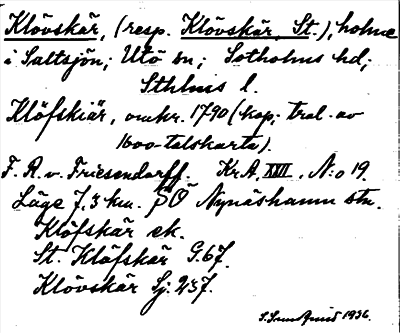 Klövskär, (resp. Klövskär, St.), holme
i Saltsjön; Utö sn; Sotholms hd;
Sthlms l.
Klöfskiär, omkr. 1790 (kop; tral. av
1600-talskarta).
F. R. v. Friesendorff. Kr.A. XXII, N:o 19.
Läge 7,3 km. SÖ Nynäshamn stn.
Klöfskär ek.
St. Klöfskär G.67.
Klövskär Sj. 237.
1936.